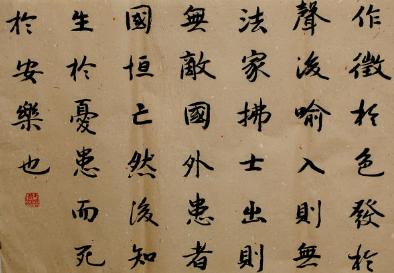 作徵於色發於
聲後喻入則無
法家拂士出則
無敵國外患者
國恒亡然後知
生於憂患而死
於安樂也